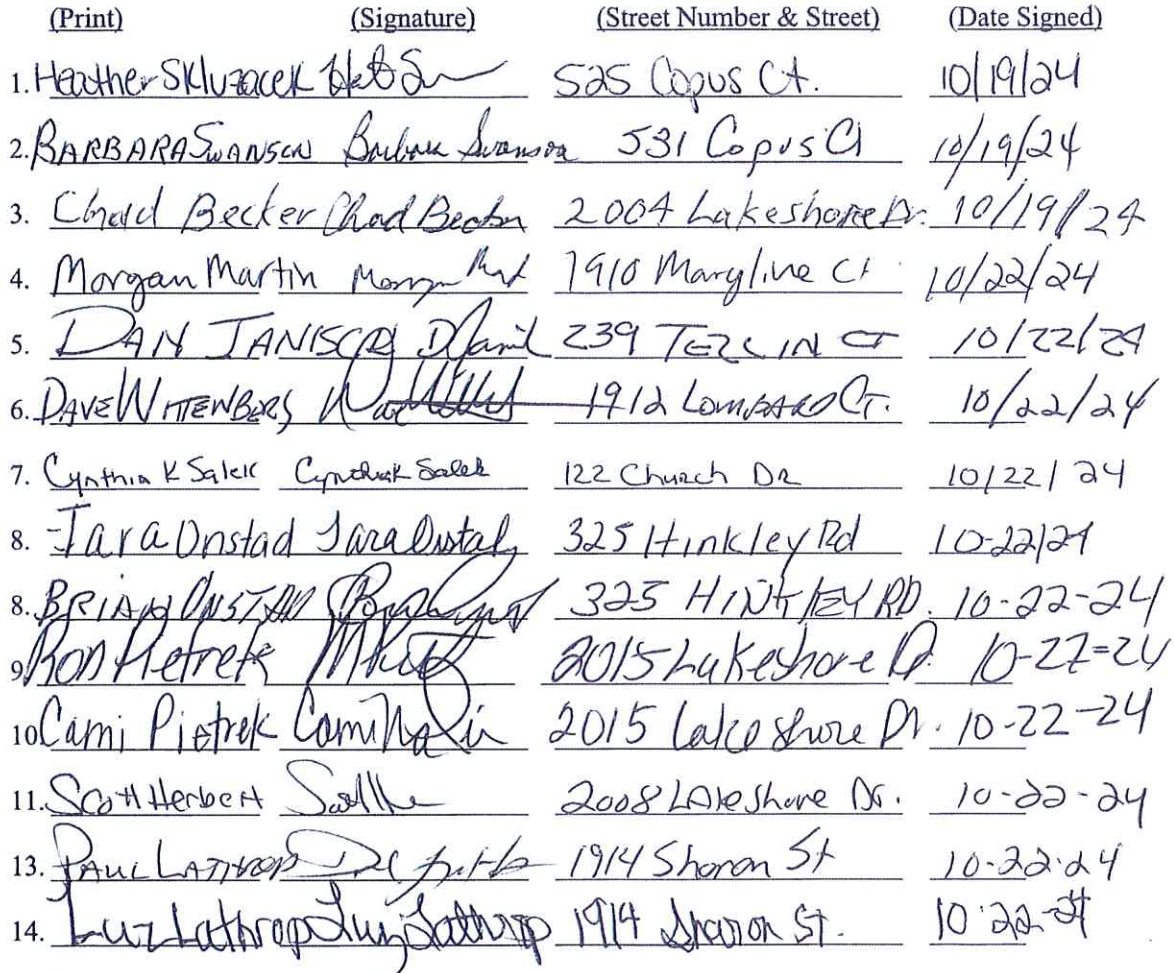 (Print) (Signature) (Street Number & Street) (Date Signed)
1. Heather Skluzacek 525 Copus Ct. 10/19/24
2. BARBARA SWANSON Barbara Swanson 531 Copus Ct 10/19/24
3. Chad Becker Chad Becker 2004 Lakeshore Dr. 10/19/24
4. Morgan Martin 1910 Maryline Ct 10/22/24
5. DAN 239 CT 10/22/24
6. DAVE WITTENBERG 1912 LOMBARD CT. 10/22/24
7. Cynthia K Salek Cynthia K Salek 122 Church DR 10/22/24
8. Tara Onstad Tara Onstad 325 Hinkley Rd 10-22/24
8. BRIAN ONSTAD 325 HINKLEY RD. 10-22-24
9. Ron Pietrek 2015 Lakeshore D 10-22-24
10. Cami Pietrek Cami 2015 Lake shore Dr. 10-22-24
11. Scott Herbert 2008 Lakeshore Dr. 10-22-24
13. PAUL LATHROP 1914 Sharon St 10-22-24
14. Luz Lathrop Luz Lathrop 1914 Sharon St. 10-22-24